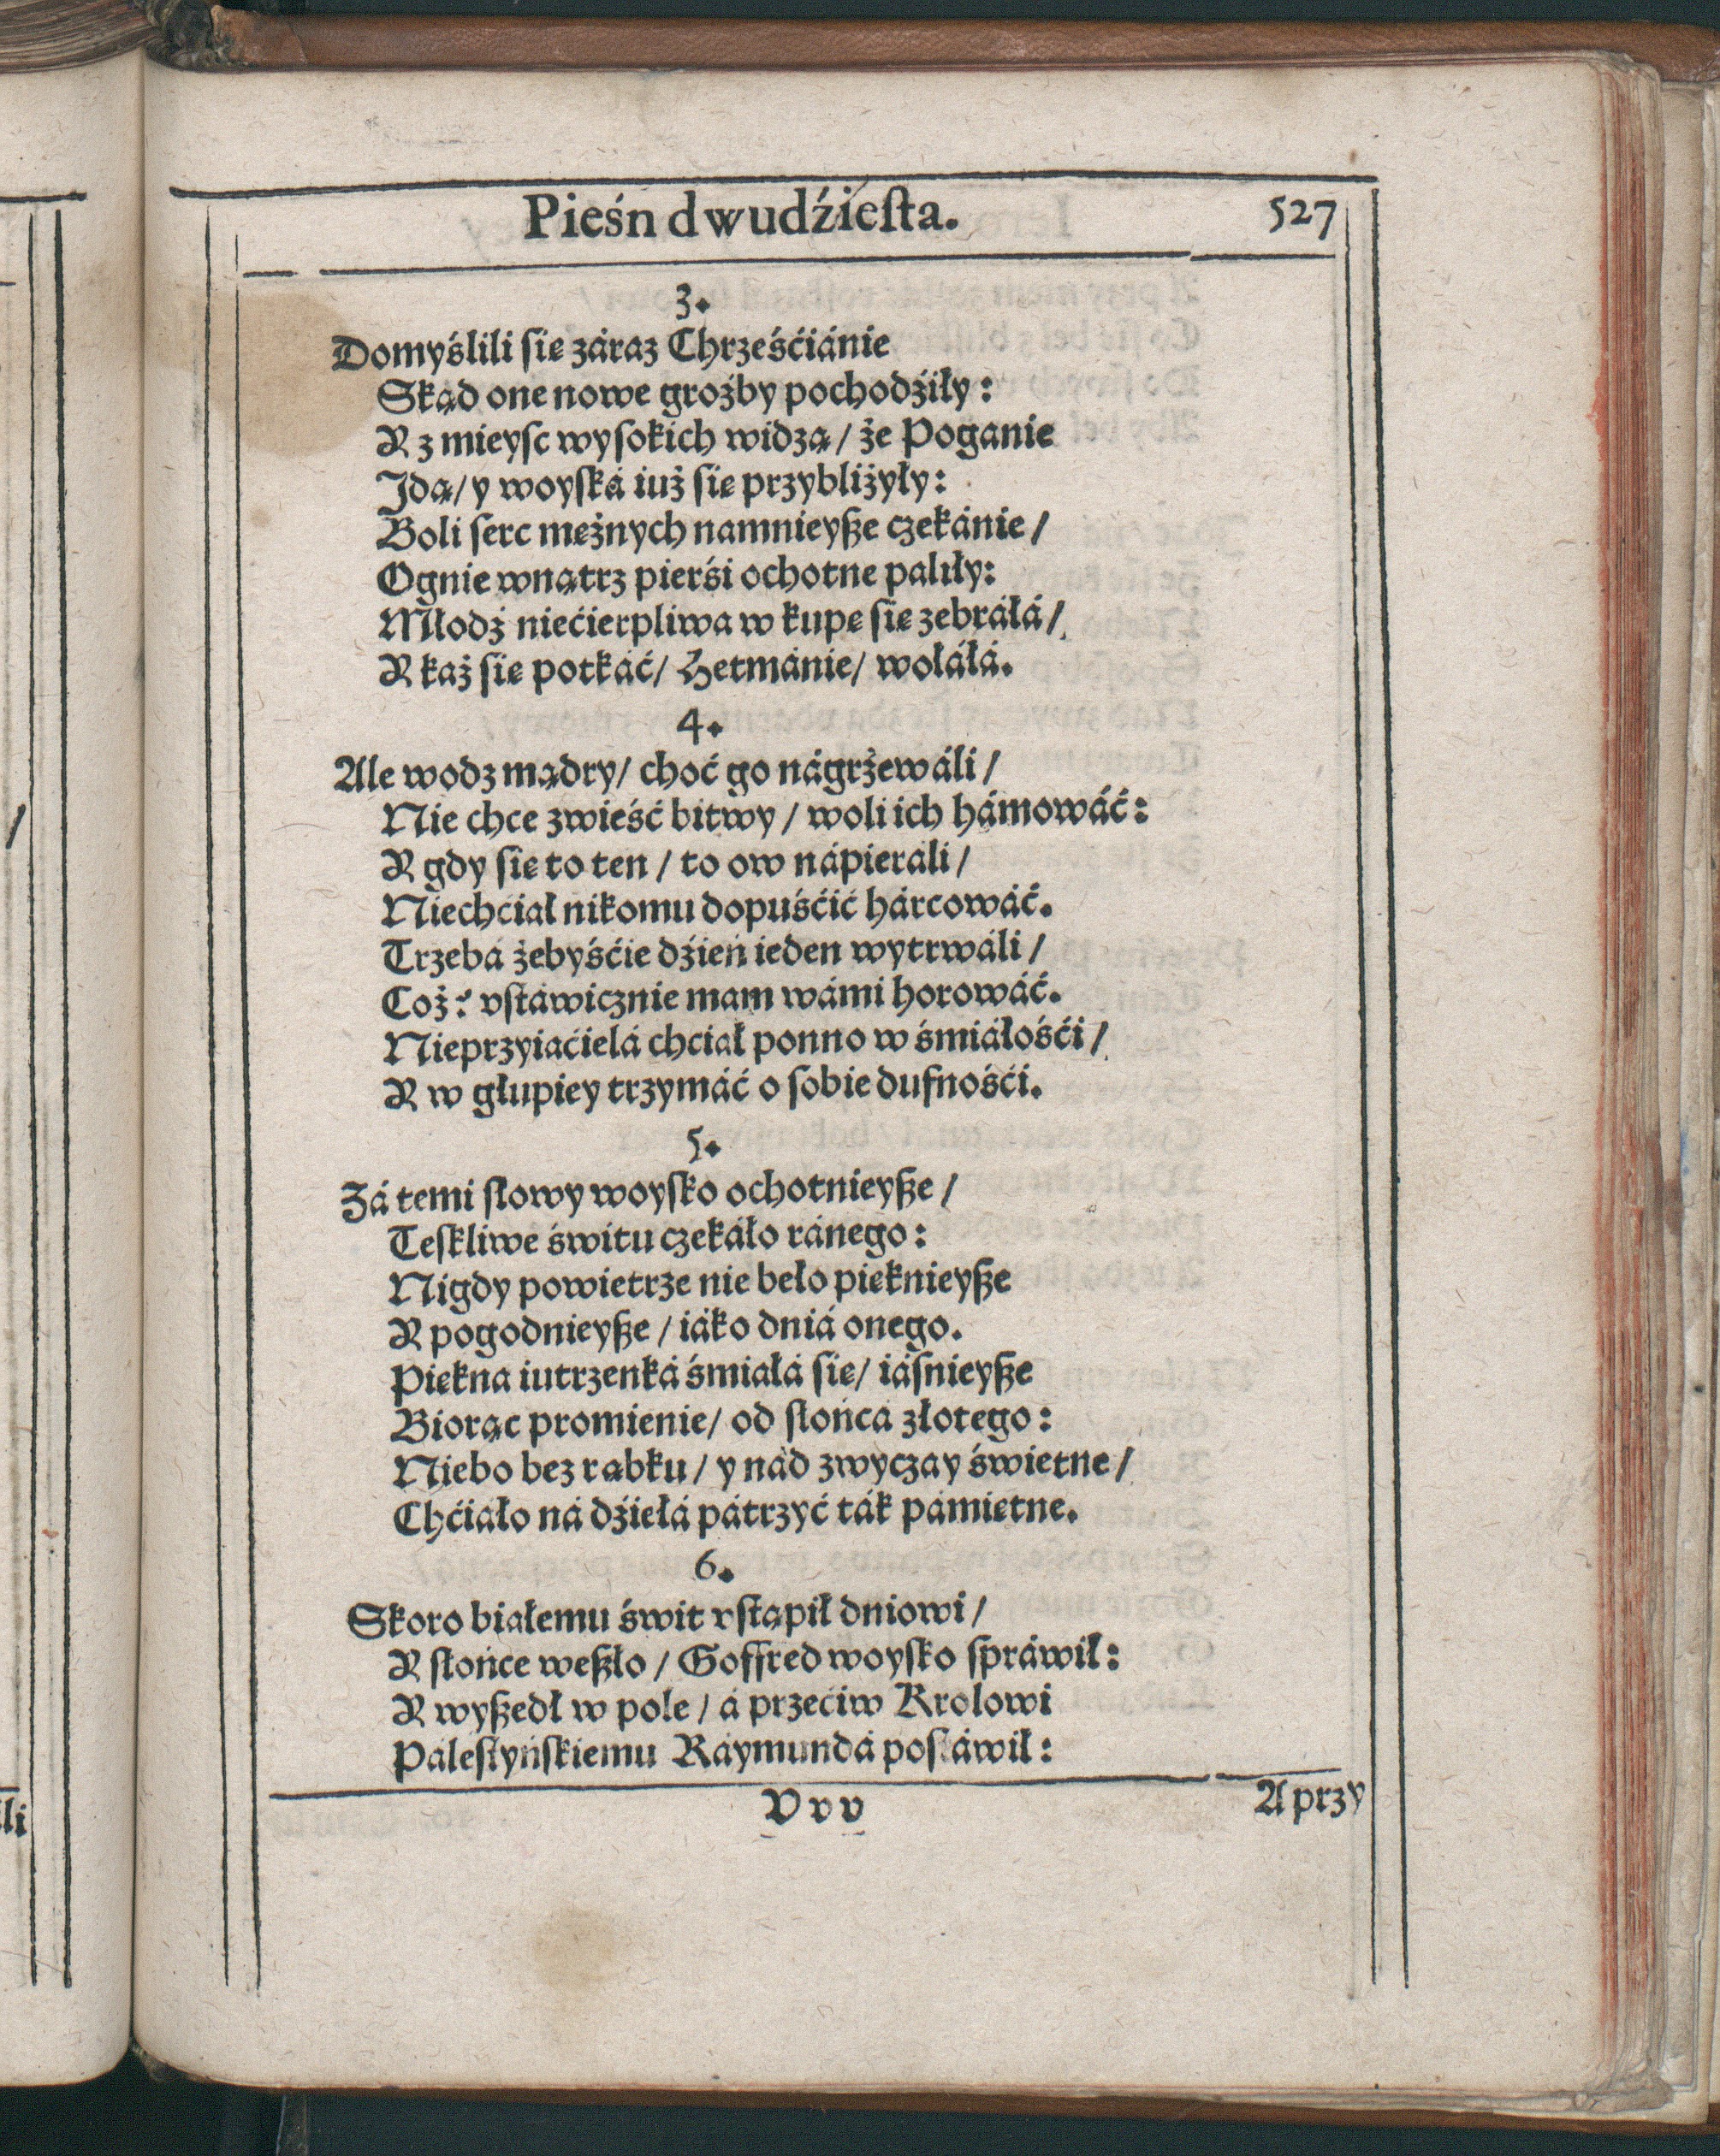 Pieśn dwudźiesta.
527
3.
Domyślili się záraz Chrześćiánie
Skąd one nowe groźby pochodźiły:
Y z mieysc wysokich widzą/ że Poganie
Idą/ y woyská iuż się przybliżyły:
Boli serc mężnych namnieysze czekánie/
Ognie wnątrz pierśi ochotne paliły:
Młodź niećierpliwa w kupę się zebráłá/
Y każ się potkáć/ Hetmánie/ wołáłá.
4.
Ale wodz mądry/ choć go nágrzewáli/
Nie chce zwieść bitwy/ woli ich hámowáć:
Y gdy się to ten/ to ow nápieráli/
Niechćiał nikomu dopuśćić hárcowáć.
Trzebá żebyśćie dźień ieden wytrwáli/
Coż? vstáwicznie mam wámi horowáć.
Nieprzyiaćielá chciał ponno w śmiáłośći/
Y w głupiey trzymáć o sobie dufnośći.
5.
Zá temi słowy woysko ochotnieysze/
Teskliwe świtu czekáło ránego:
Nigdy powietrze nie beło pięknieysze
Y pogodnieysze/ iáko dniá onego.
Piękna iutrzenká śmiałá się/ iásnieysze
Biorąc promienie/ od słońcá złotego:
Niebo bez rąbku/ y nád zwyczay świetne/
Chćiáło ná dźiełá pátrzyć ták pámiętne.
6.
Skoro białemu świt vstąpił dniowi/
Y słońce weszło/ Goffred woysko spráwił:
Y wyszedł w pole/ á przećiw Krolowi
Pálestyńskiemu Ráymundá postáwił:
Vvv
A przy
li
/